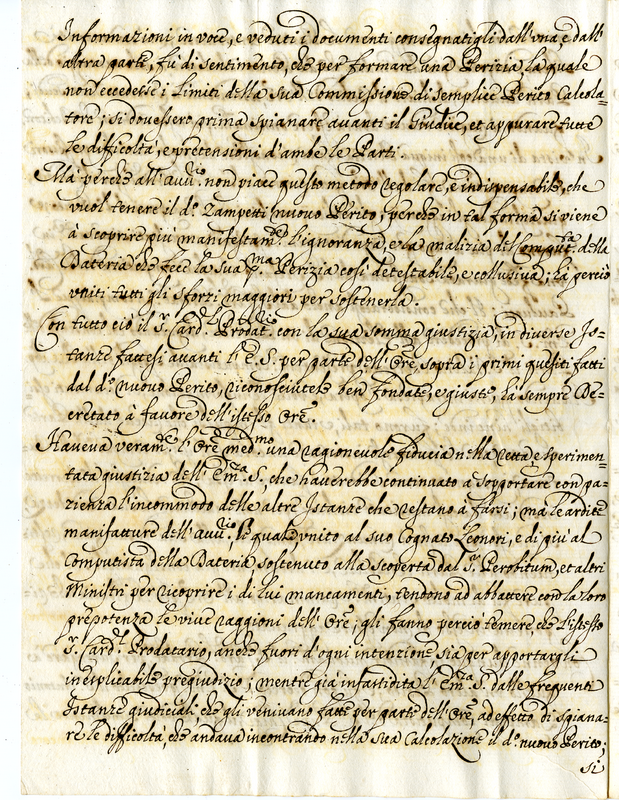 Informazioni in voce, e veduti i documenti consegnatigli dall'una, e dall'
altra parte, fù di sentimento, che per formare una Perizia, la quale
non eccedesse i Limiti della sua Commissione di semplice Perito Calcola=
tore; si dovessero prima spianare avanti il Giudice, et appurare tutte
le difficoltà, e pretensioni d'ambe le Parti.
Mà perche all'Avv.rio non piace questo metodo regolare, e indispensabile, che
vuol tenere il d.o Zampetti nuovo Perito; perche in tal forma si viene
à scoprire più manifestam.te l'ignoranza, e la malizia del Comput.ta della
Dateria che fece la sua p.ma Perizia così detestabile, e collusiva; hà perciò
uniti tutti gli sforzi maggiori per sostenerla.
Con tutto ciò il S.r Card.l Prodat.rio con la sua somma giustizia, in diverse Js=
tanze fattesi avanti l'E.S. per parte dell'Ore, sopra i primi quesiti fatti
dal d.o nuovo Perito, riconosciutele ben fondate, e giuste, hà sempre De=
cretato à favore dell'istesso Ore.
Haveva veram.te l'Ore med.mo una ragionevole fiducia nella retta, e sperimen=
tata giustizia dell'Em.za S., che haverebbe continuato a sopportare con pa=
zienza l'incommodo delle altre Jstanze che restano à farsi; ma le ardite
manifatture dell'Avv.rio, il quale unito al suo Cognato Leonori, e di più al
Computista della Dateria sostenuto alla scoperta dal S.r Perobitum, et altri
Ministri per ricoprire i di lui mancamenti, tendono ad abbattere con la loro
prepotenza le vive raggioni dell'Ore; gli fanno perciò temere, che l'istesso
S.r Card.l Prodatario, anche fuori d'ogni intenzione, sia per apportargli
inesplicabile pregiudizio; mentre già infastidita l'Em.za S. dalle frequenti
Jstanze giudiciali che gli venivano fatte per parte dell'Ore, ad effetto di spiana=
re le difficoltà, che andava incontrando nella sua Calcolazione il d.o nuovo Perito;
si